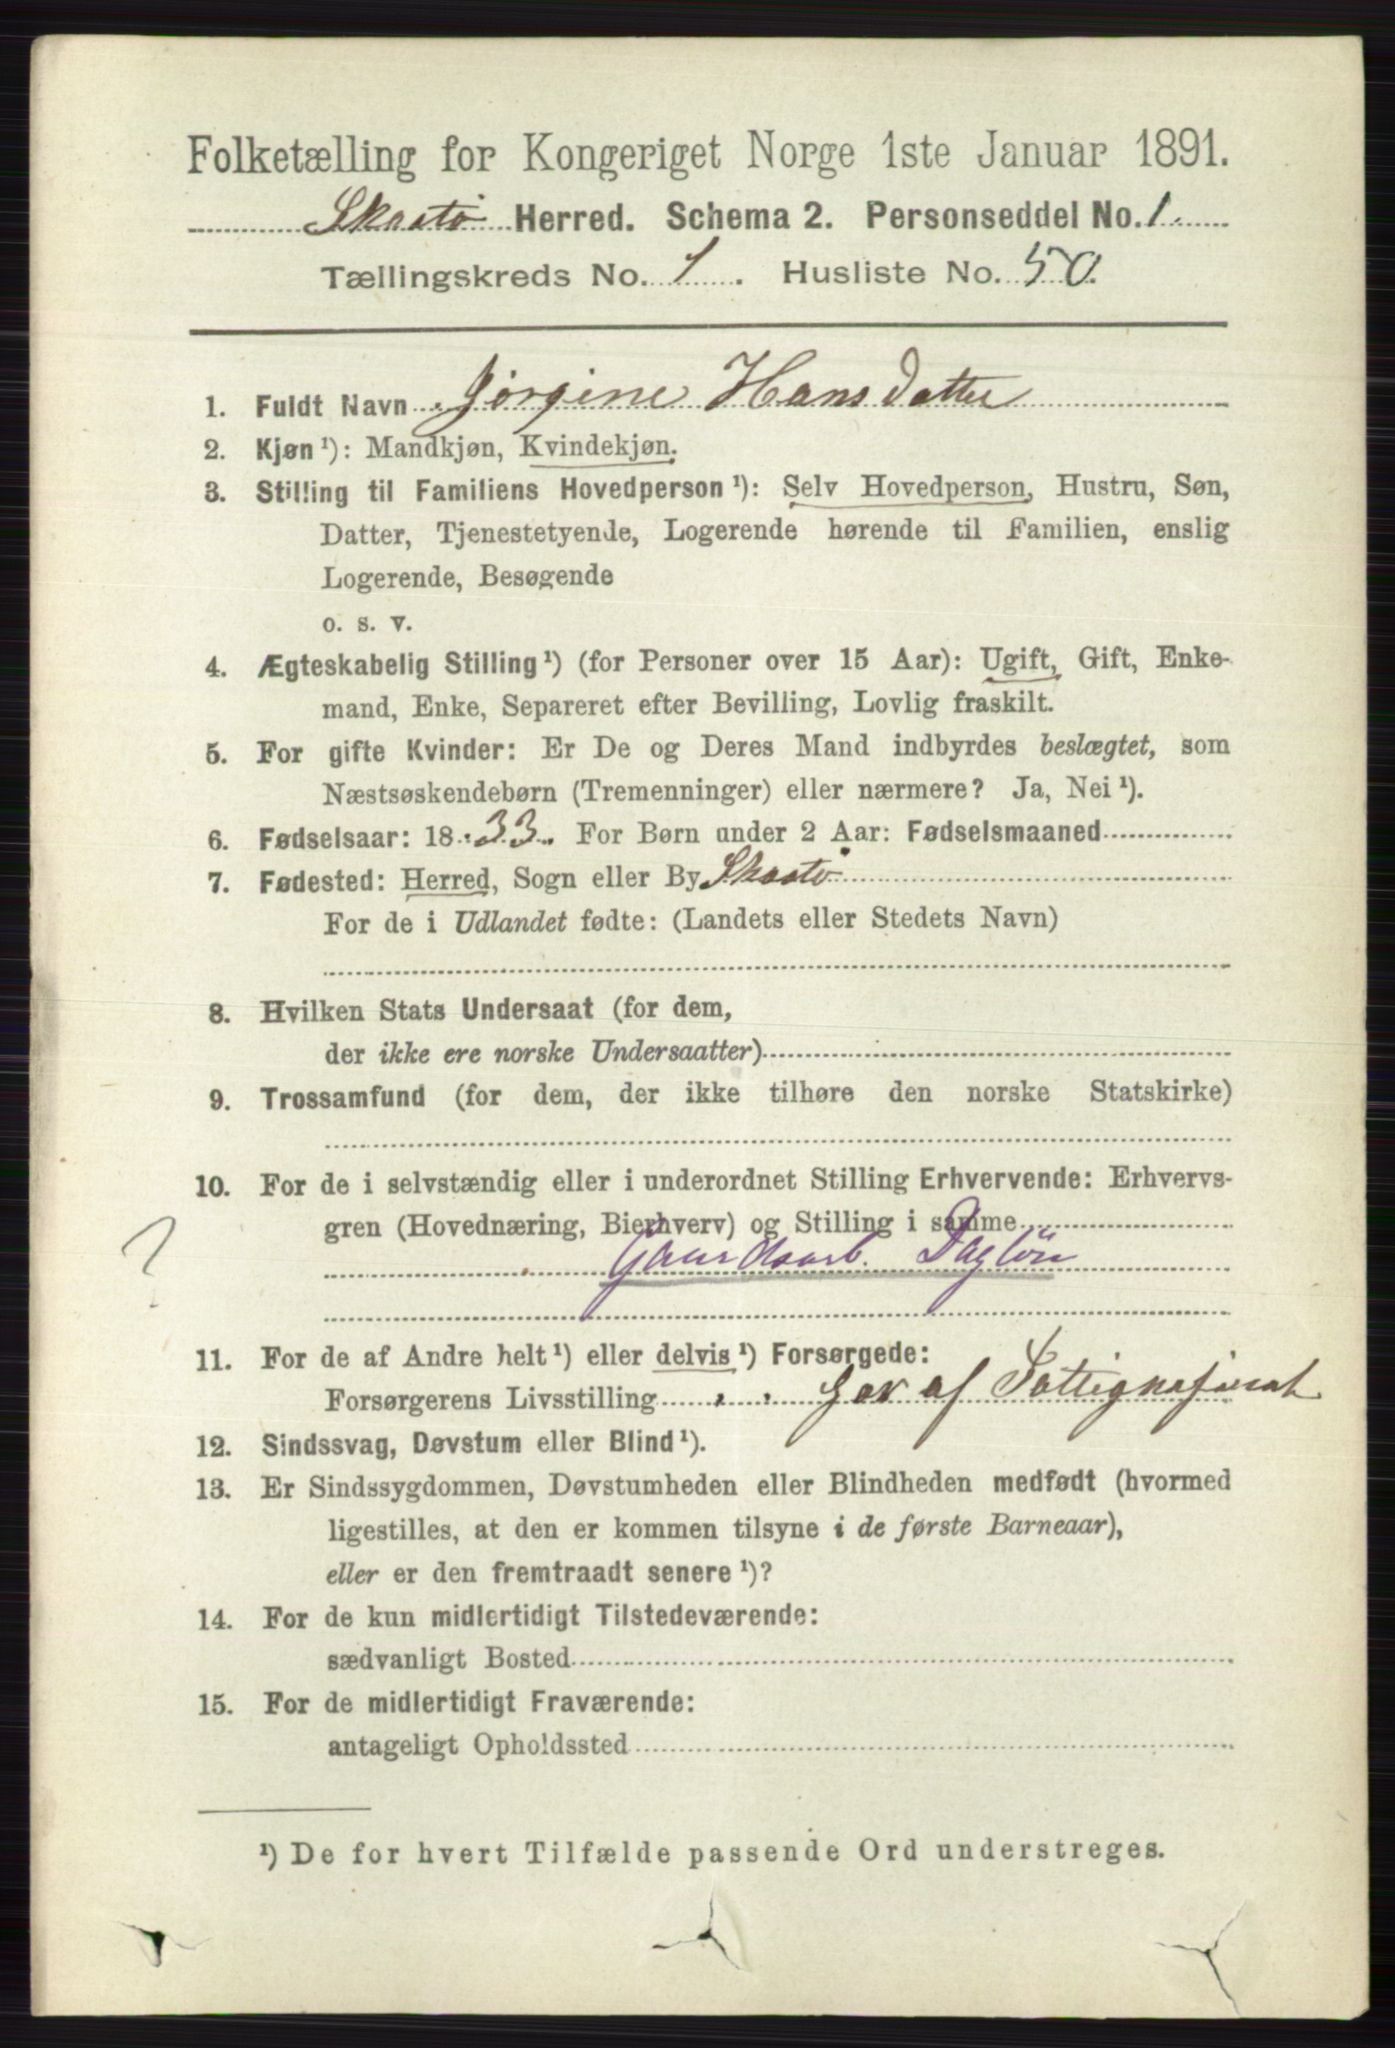 Folketælling for Kongeriget Norge 1ste Januar 1891.
Skaatø Herred. Schema 2. Personseddel No. 1.
Tællingskreds No. 1. Husliste No. 50.
1. Fuldt Navn Jørgine Hansdatter
2. Kjøn ¹): Mandkjøn, Kvindekjøn.
3. Stilling til Familiens Hovedperson ¹): Selv Hovedperson, Hustru, Søn,
Datter, Tjenestetyende, Logerende hørende til Familien, enslig
Logerende, Besøgende
o. s. v.
4. Ægteskabelig Stilling ¹) (for Personer over 15 Aar): Ugift, Gift, Enke-
mand, Enke, Separeret efter Bevilling, Lovlig fraskilt.
5. For gifte Kvinder: Er De og Deres Mand indbyrdes beslægtet, som
Næstsøskendebørn (Tremenninger) eller nærmere? Ja, Nei ¹).
6. Fødselsaar: 1833. For Børn under 2 Aar: Fødselsmaaned
7. Fødested: Herred, Sogn eller By Skaatø
For de i Udlandet fødte: (Landets eller Stedets Navn)
8. Hvilken Stats Undersaat (for dem,
der ikke ere norske Undersaatter)
9. Trossamfund (for dem, der ikke tilhøre den norske Statskirke)
10. For de i selvstændig eller i underordnet Stilling Erhvervende: Erhvervs-
gren (Hovednæring, Bierhverv) og Stilling i samme
?
Gaardsarb. Dagløn
11. For de af Andre helt ¹) eller delvis ¹) Forsørgede:
Forsørgerens Livsstilling af
12. Sindssvag, Døvstum eller Blind ¹).
13. Er Sindssygdommen, Døvstumheden eller Blindheden medfødt (hvormed
ligestilles, at den er kommen tilsyne i de første Barneaar),
eller er den fremtraadt senere ¹)?
14. For de kun midlertidigt Tilstedeværende:
sædvanligt Bosted
15. For de midlertidigt Fraværende:
antageligt Opholdssted
¹) De for hvert Tilfælde passende Ord understreges.